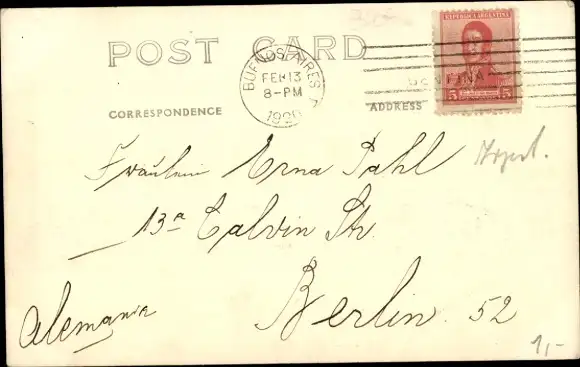 POST CARD
REPUBLICA ARGENTINA
5 5
BUENOS AIRES
FEB 13
8-PM
CORRESPONDENCE
ADDRESS
Fräulein Erna Pahl
13a Calvin Str.
Berlin. 52
Alemania
1,-